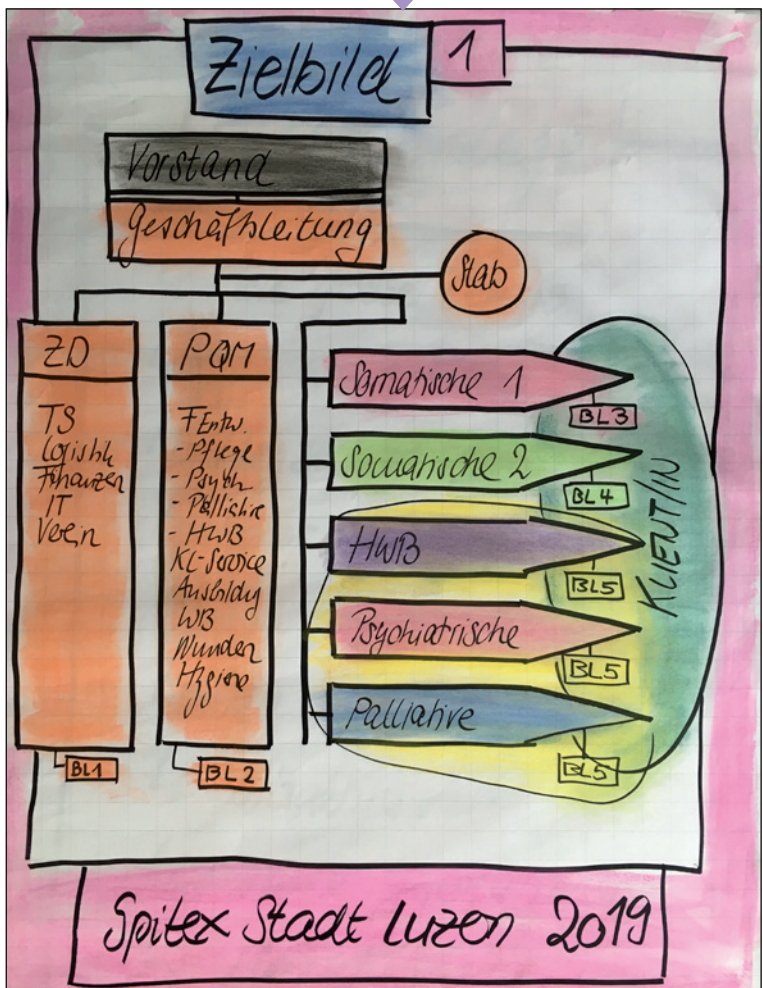 Zielbild 1
Vorstand
Geschäftsleitung
Stab
ZD
TS
Logistik
Finanzen
IT
Verein
BL1
PQM
FEntw.
- Pflege
- Psych
- Palliative
- HWB
KL-Service
Ausbildg
WB
Wunden
Hygiene
BL2
Somatische 1
BL3
Somatische 2
BL4
HWB
BL5
Psychiatrische
BL5
Palliative
BL5
KLIENT/IN
Spitex Stadt Luzern 2019